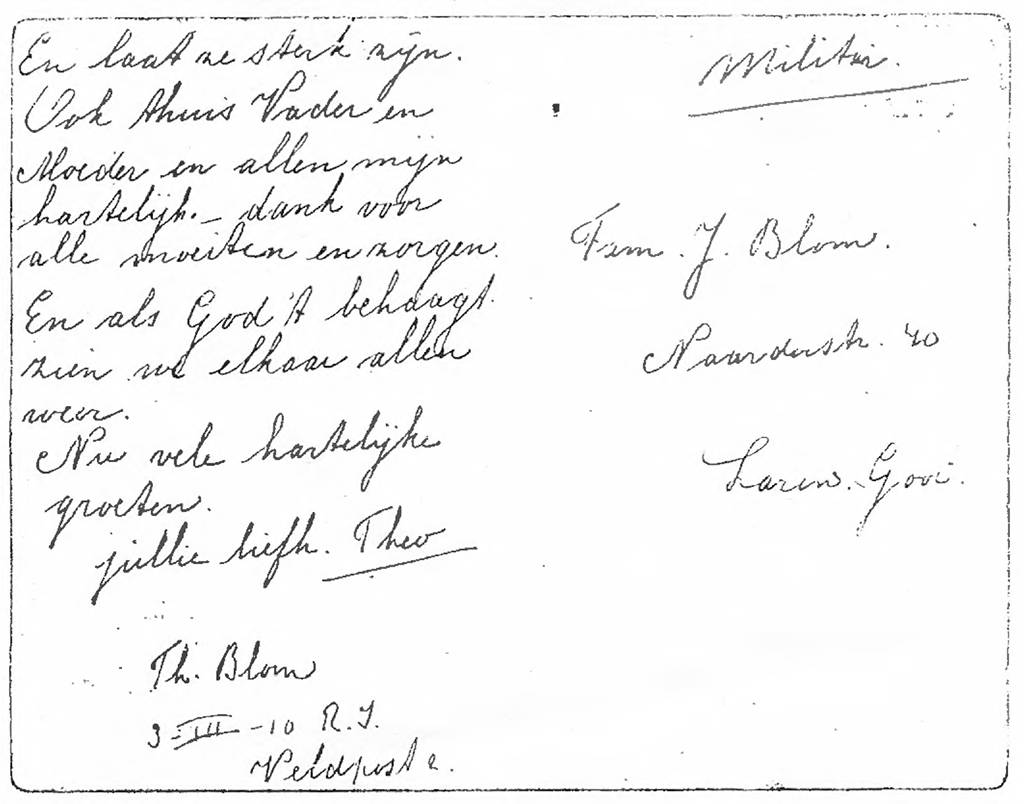 En laat ze sterk zijn.
Ook thuis Vader en
Moeder en allen mijn
hartelijk. – dank voor
alle moeiten en zorgen.
En als God 't behaagt
zien we elkaar allen
weer.
Nu vele hartelijke
groeten.
jullie liefh. Theo
Th. Blom
3-III-10 R.I.
Veldpost 2.
Militair.
Fam. J. Blom.
Naarderstr. 40
Laren. Gooi.